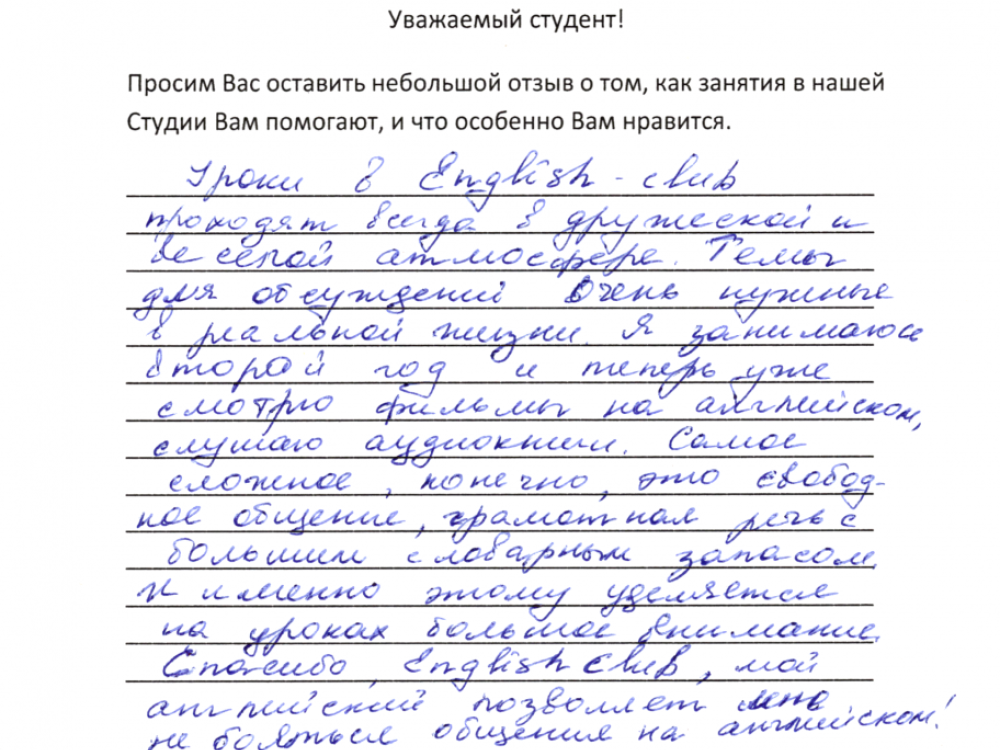 Уважаемый студент!
Просим Вас оставить небольшой отзыв о том, как занятия в нашей
Студии Вам помогают, и что особенно Вам нравится.
Уроки в English-club
проходят всегда в дружеской и
веселой атмосфере. Темы
для обсуждений очень нужные
в реальной жизни. Я занимаюсь
второй год и теперь уже
смотрю фильмы на английском,
слушаю аудиокниги. Самое
сложное, конечно, это свобод-
ное общение, грамотная речь с
большим словарным запасом.
И именно этому уделяется
на уроках большое внимание.
Спасибо, English club, мой
английский позволяет мне
не бояться общения на английском!